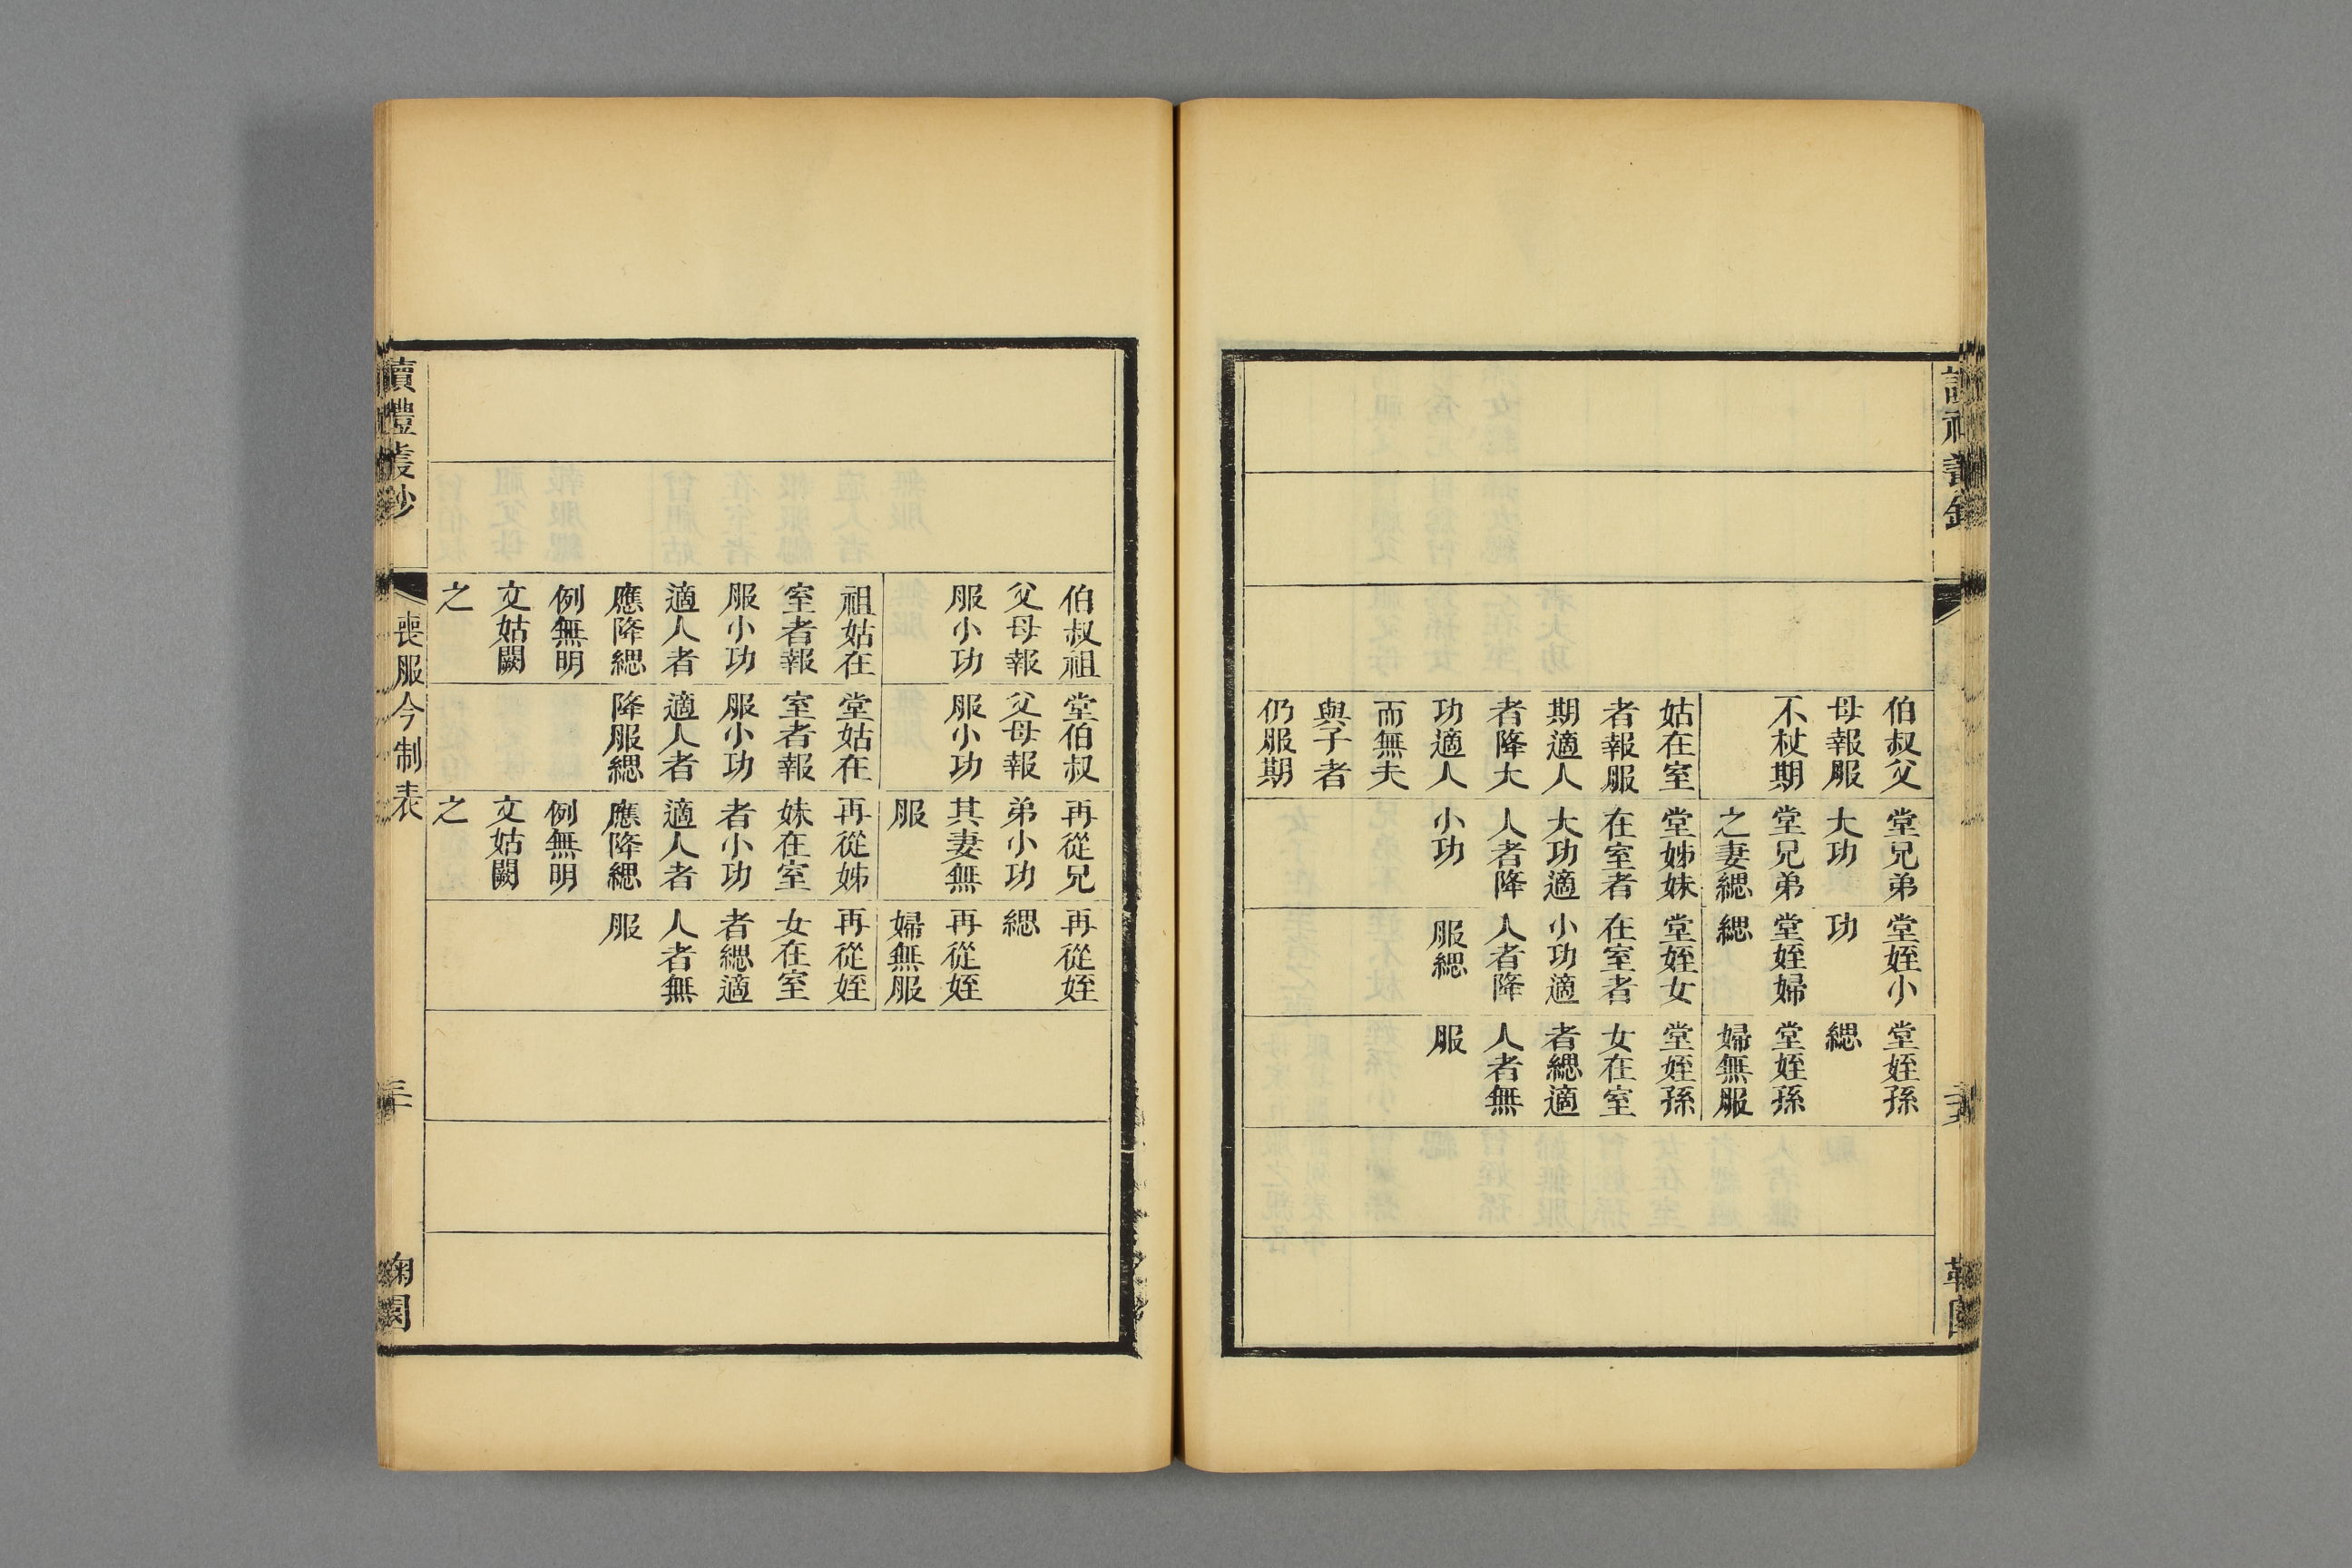 伯叔父
母報服
不杖期
姑在室
者報服
期適人
者降大
功適人
而無夫
與子者
仍服期
堂兄弟
大功
堂兄弟
之妻緦
堂姊妹
在室者
大功適
人者降
小功
堂姪小
功
堂姪婦
緦
堂姪女
在室者
小功適
人者降
服緦
堂姪孫
緦
堂姪孫
婦無服
堂姪孫
女在室
者緦適
人者無
服
伯叔祖
父母報
服小功
祖姑在
室者報
服小功
適人者
應降緦
例無明
文姑闕
之
堂伯叔
父母報
服小功
堂姑在
室者報
服小功
適人者
降服緦
再從兄
弟小功
其妻無
服
再從姊
妹在室
者小功
適人者
應降緦
例無明
文姑闕
之
再從姪
緦
再從姪
婦無服
再從姪
女在室
者緦適
人者無
服
讀禮叢鈔
喪服今制表
鞠園